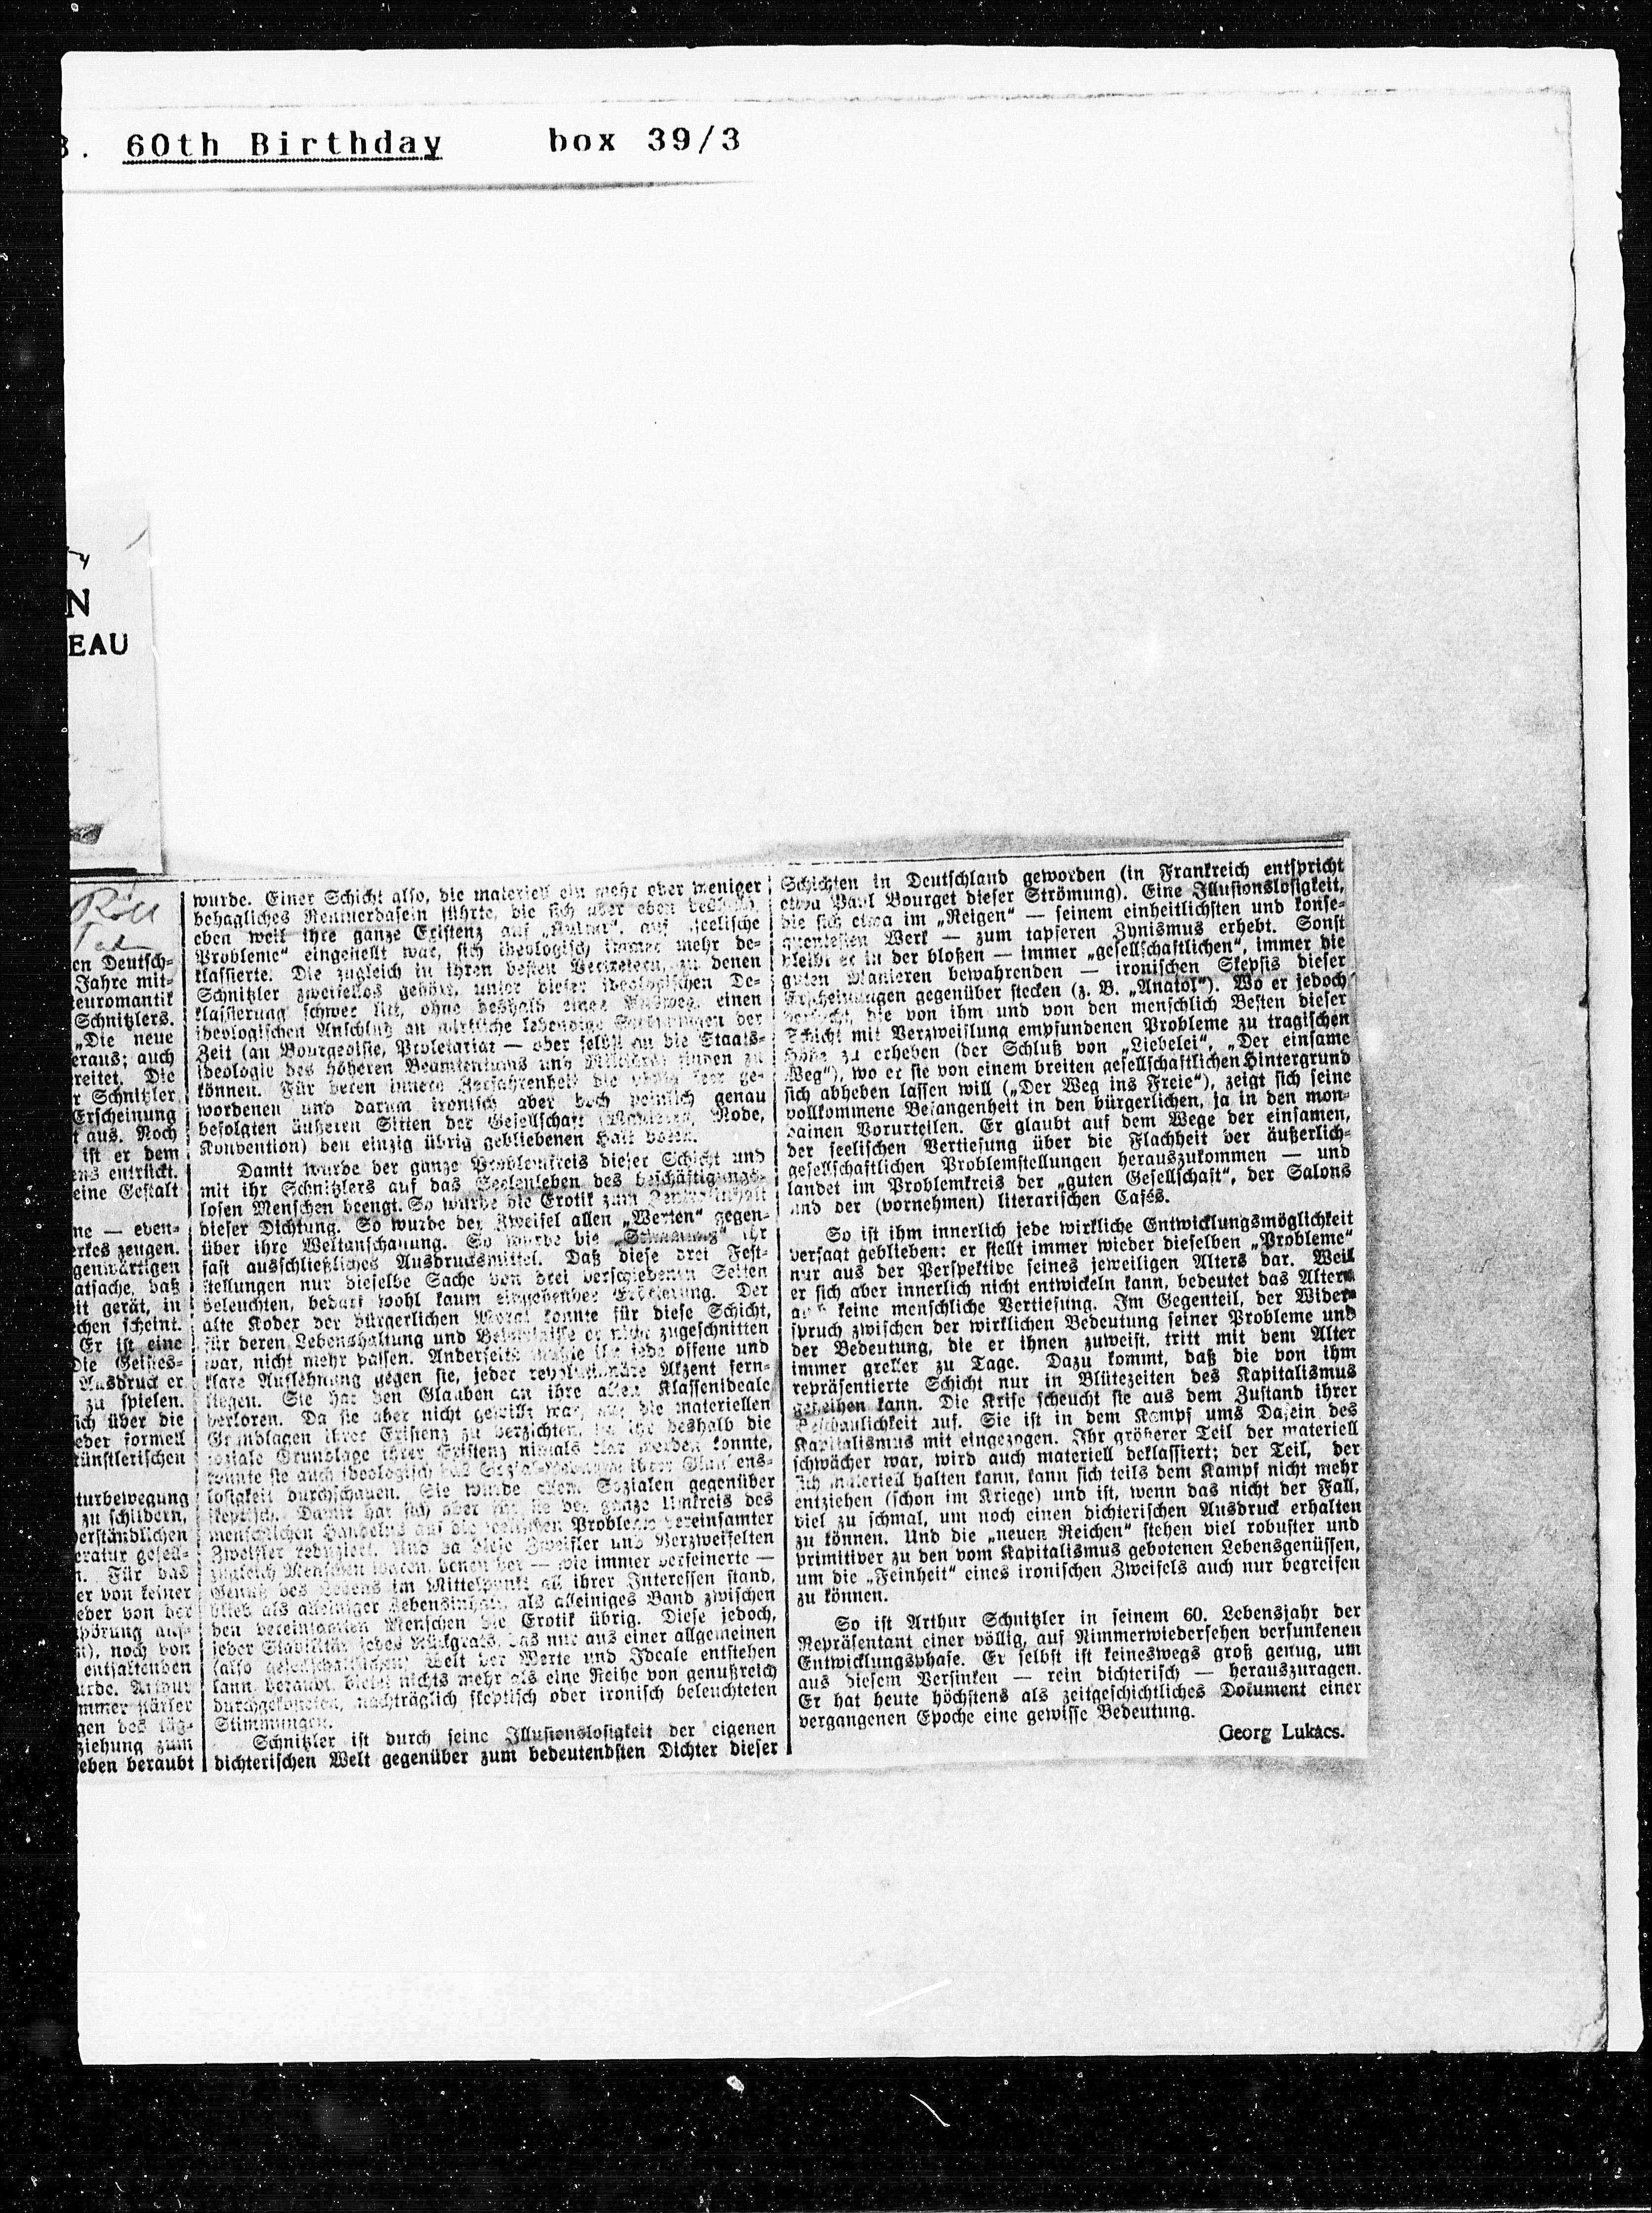 3. 60th Birthday box 39/3
N
EAU
en Deutsch-
Jahre mit-
euromantik
Schnitzlers.
„Die neue
eraus; auch
reitet. Die
r Schnitzler
Erscheinung
t aus. Noch
ist er dem
ens entrückt.
eine Gestalt
ne — eben-
erkes zeugen.
genwärtigen
atsache, daß
eit gerät, in
echen scheint.
Er ist eine
Die Geistes-
Ausdruck er
zu spielen.
sich über die
eder formell
künstlerischen
turbewegung
zu schildern,
erständlichen
eratur gesell-
n. Für das
er von keiner
eder von der
pörung auf-
noch von
entfaltenden
urde. Arthur
mmer stärker
gen des
ziehung zum
eben beraubt
wurde. Einer Schicht also, die materiell ein mehr oder weniger
behagliches Rentnerdasein führte, die sich aber eben
eben weil ihre ganze Existenz auf „Kultur“, auf „seelische
Probleme“ eingestellt war, sich ideologisch immer mehr de-
klassierte. Die zugleich in ihren besten Vertretern, zu denen
Schnitzler zweifellos gehört, unter dieser ideologischen De-
klassierung schwer litt, ohne deshalb einen Ausweg, einen
ideologischen Anschluß an wirkliche lebendige Strömungen der
Zeit (an Bourgeoisie, Proletariat — oder selbst an die Staats-
ideologie des höheren Beamtentums und Militärs) finden zu
können. Für deren innere Zerfahrenheit die völlig leer ge-
wordenen und darum ironisch aber doch peinlich genau
befolgten äußeren Sitten der Gesellschaft (Manieren, Mode,
Konvention) den einzig übrig gebliebenen Halt boten.
Damit wurde der ganze Problemkreis dieser Schicht und
mit ihr Schnitzlers auf das Seelenleben des beschäftigungs-
losen Menschen beengt. So wurde die Erotik zum Zentralinhalt
dieser Dichtung. So wurde der Zweifel allen „Werten“ gegen-
über ihre Weltanschauung. So wurde die „Stimmung“ ihr
fast ausschließliches Ausdrucksmittel. Daß diese drei Fest-
stellungen nur dieselbe Sache von drei verschiedenen Seiten
beleuchten, bedarf wohl kaum eingehender Erörterung. Der
alte Kodex der bürgerlichen Moral konnte für diese Schicht,
für deren Lebenshaltung und Bedürfnisse er nicht zugeschnitten
war, nicht mehr passen. Anderseits mußte ihr jede offene und
klare Auflehnung gegen sie, jeder revolutionäre Akzent fern-
liegen. Sie hat den Glauben an ihre alten Klassenideale
verloren. Da sie aber nicht gewillt war, auf die materiellen
Grundlagen ihrer Existenz zu verzichten, da ihr deshalb die
soziale Grundlage ihrer Existenz niemals klar werden konnte,
konnte sie auch ideologisch das ihrer Glaubens-
losigkeit durchschauen. Sie wurde allem Sozialen gegenüber
skeptisch. Damit hat sich aber für sie der ganze Umkreis des
menschlichen Handelns auf die seelischen Probleme vereinsamter
Zweifler reduziert. Und da diese Zweifler und Verzweifelten
zugleich Menschen waren, denen der — wie immer verfeinerte —
Genuß des Lebens im Mittelpunkt all ihrer Interessen stand,
blieb als alleiniger Lebensinhalt, als alleiniges Band zwischen
den vereinsamten Menschen die Erotik übrig. Diese jedoch,
jeder Stabilität, jedes Rückgrats, das nur aus einer allgemeinen
(also gesellschaftlichen) Welt der Werte und Ideale entstehen
kann, beraubt, bietet nichts mehr als eine Reihe von genußreich
durchgekosteten, nachträglich skeptisch oder ironisch beleuchteten
Stimmungen.
Schnitzler ist durch seine Illusionslosigkeit der eigenen
dichterischen Welt gegenüber zum bedeutendsten Dichter dieser
Schichten in Deutschland geworden (in Frankreich entspricht
etwa Paul Bourget dieser Strömung). Eine Illusionslosigkeit,
die sich etwa im „Reigen“ — seinem einheitlichsten und konse-
quentesten Werk — zum tapferen Zynismus erhebt. Sonst
bleibt er in der bloßen — immer „gesellschaftlichen“, immer die
guten Manieren bewahrenden — ironischen Skepsis dieser
Erscheinungen gegenüber stecken (z. B. „Anatol“). Wo er jedoch
versucht, die von ihm und von den menschlich Besten dieser
Schicht mit Verzweiflung empfundenen Probleme zu tragischen
Höhe zu erheben (der Schluß von „Liebelei“, „Der einsame
Weg“), wo er sie von einem breiten gesellschaftlichen Hintergrund
sich abheben lassen will („Der Weg ins Freie“), zeigt sich seine
vollkommene Befangenheit in den bürgerlichen, ja in den mon-
dainen Vorurteilen. Er glaubt auf dem Wege der einsamen,
der seelischen Vertiefung über die Flachheit der äußerlich-
gesellschaftlichen Problemstellungen herauszukommen — und
landet im Problemkreis der „guten Gesellschaft“, der Salons
und der (vornehmen) literarischen Cafés.
So ist ihm innerlich jede wirkliche Entwicklungsmöglichkeit
versagt geblieben: er stellt immer wieder dieselben „Probleme“
nur aus der Perspektive seines jeweiligen Alters dar. Weil
er sich aber innerlich nicht entwickeln kann, bedeutet das Altern
auch keine menschliche Vertiefung. Im Gegenteil, der Wider-
spruch zwischen der wirklichen Bedeutung seiner Probleme und
der Bedeutung, die er ihnen zuweist, tritt mit dem Alter
immer greller zu Tage. Dazu kommt, daß die von ihm
repräsentierte Schicht nur in Blütezeiten des Kapitalismus
gedeihen kann. Die Krise scheucht sie aus dem Zustand ihrer
Beschaulichkeit auf. Sie ist in dem Kampf ums Dasein des
Kapitalismus mit eingezogen. Ihr größerer Teil der materiell
schwächer war, wird auch materiell deklassiert; der Teil, der
sich materiell halten kann, kann sich teils dem Kampf nicht mehr
entziehen (schon im Kriege) und ist, wenn das nicht der Fall,
viel zu schmal, um noch einen dichterischen Ausdruck erhalten
zu können. Und die „neuen Reichen“ stehen viel robuster und
primitiver zu den vom Kapitalismus gebotenen Lebensgenüssen,
um die „Feinheit“ eines ironischen Zweifels auch nur begreifen
zu können.
So ist Arthur Schnitzler in seinem 60. Lebensjahr der
Repräsentant einer völlig, auf Nimmerwiedersehen versunkenen
Entwicklungsphase. Er selbst ist keineswegs groß genug, um
aus diesem Versinken — rein dichterisch — herauszuragen.
Er hat heute höchstens als zeitgeschichtliches Dokument einer
vergangenen Epoche eine gewisse Bedeutung.
Georg Lukács.